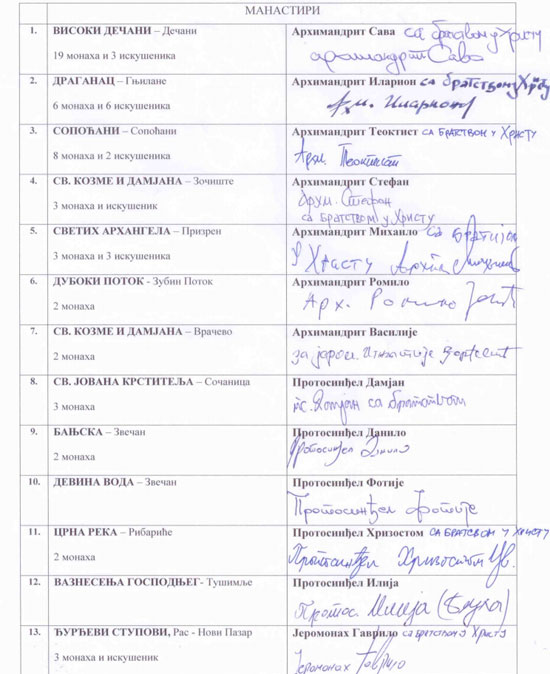 МАНАСТИРИ
1. ВИСОКИ ДЕЧАНИ – Дечани
19 монаха и 3 искушеника
Архимандрит Сава са братвом у Христу
архимандрит Сава
2. ДРАГАНАЦ – Гњилане
6 монаха и 6 искушеника
Архимандрит Иларион са братством у Христу
Арх. Иларион
3. СОПОЋАНИ – Сопоћани
8 монаха и 2 искушеника
Архимандрит Теоктист са братвом у Христу
Арх. Теоктист
4. СВ. КОЗМЕ И ДАМЈАНА – Зочиште
3 монаха и искушеник
Архимандрит Стефан
Архм. Стефан
са братством у Христу
5. СВЕТИХ АРХАНГЕЛА – Призрен
3 монаха и 3 искушеника
Архимандрит Михаило са братијом
у Христу Архим. Михаило
6. ДУБОКИ ПОТОК - Зубин Поток
2 монаха
Архимандрит Ромило
Арх. Ромило
7. СВ. КОЗМЕ И ДАМЈАНА – Врачево
2 монаха
Архимандрит Василије
за јером. Игњатије
8. СВ. ЈОВАНА КРСТИТЕЉА – Сочаница
3 монаха
Протосинђел Дамјан
пс. Дамјан са братством
9. БАЊСКА – Звечан
2 монаха
Протосинђел Данило
Протосинђел Данило
10. ДЕВИНА ВОДА – Звечан
Протосинђел Фотије
Протосинђел Фотије
11. ЦРНА РЕКА – Рибариће
2 монаха
Протосинђел Хризостом са братсвом у Христу
Протосинђел Хризостом
12. ВАЗНЕСЕЊА ГОСПОДЊЕГ- Тушимље
Протосинђел Илија
Протос. Илија
13. ЂУРЂЕВИ СТУПОВИ, Рас - Нови Пазар
3 монаха и искушеник
Јеромонах Гаврило са братством у Христу
Јеромонах Гаврило